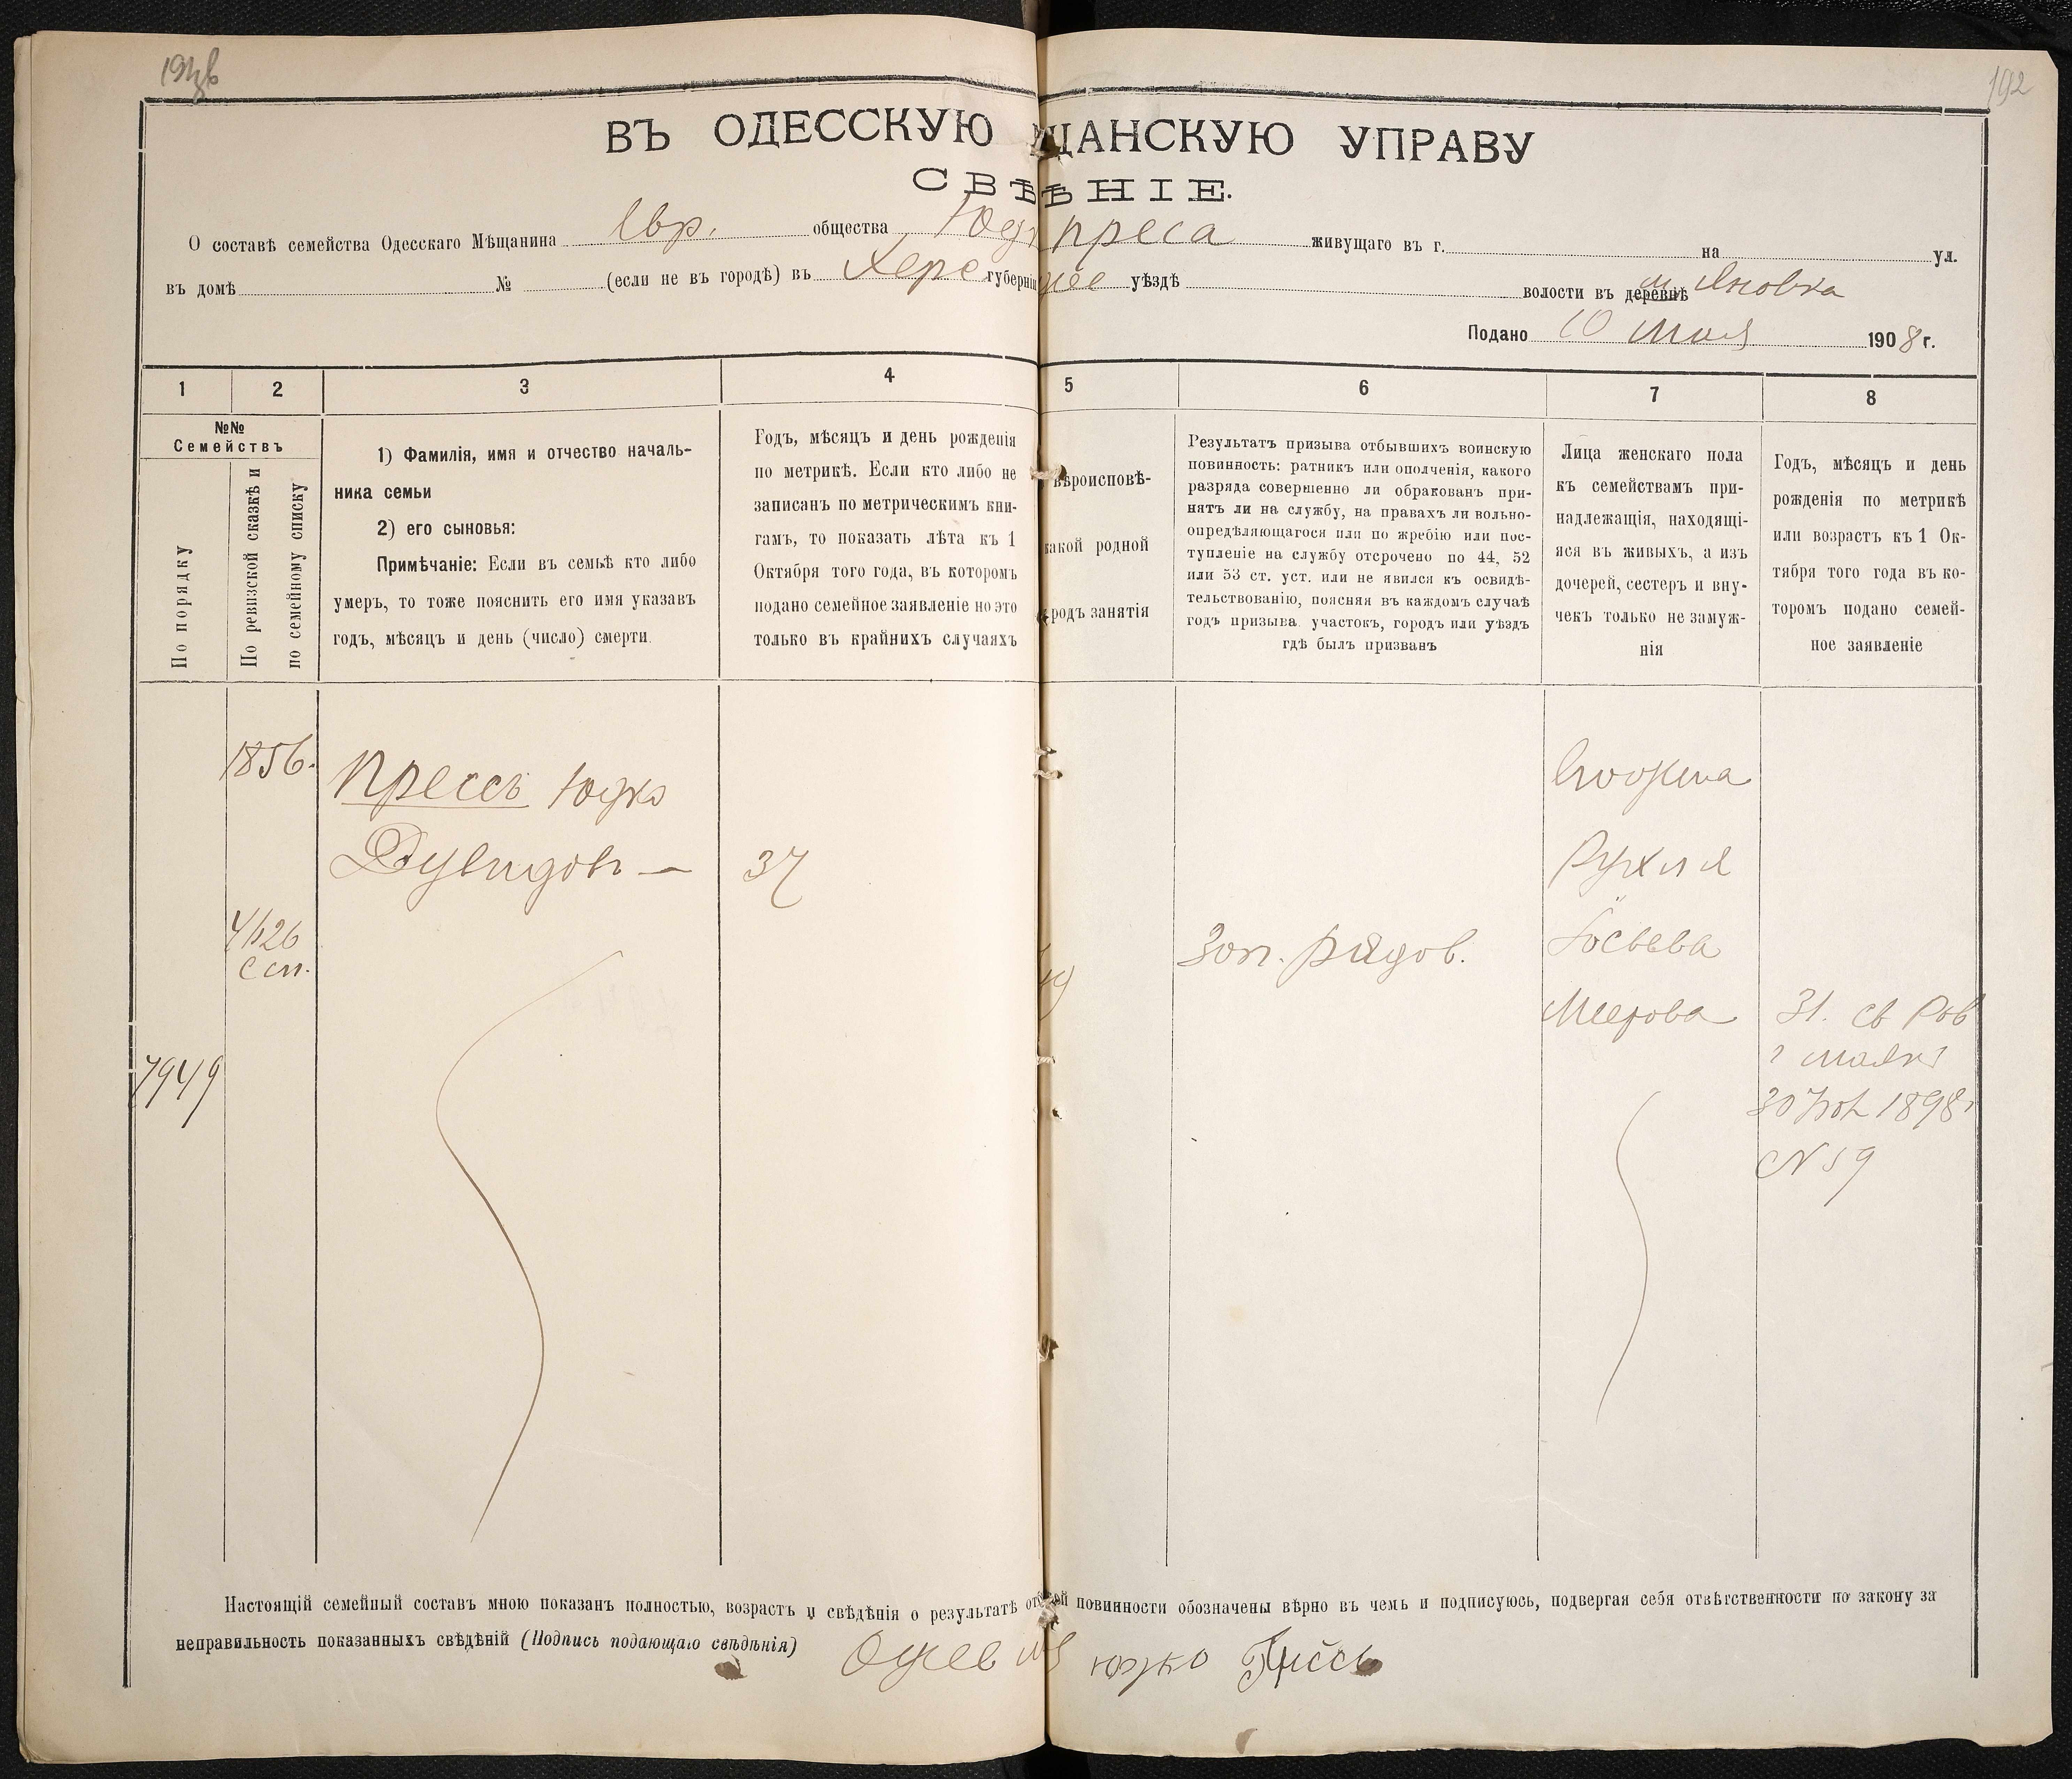 192
ВЪ ОДЕССКУЮ ЩАНСКУЮ УПРАВУ
СВѢ ѢНІЕ.
О составѣ семейства Одесскаго Мѣщанина Евр. общества Юдк Преса живущаго въ г. на ул.
въ домѣ № (если не въ городѣ) въ Херс губерніи уѣздѣ волости въ деревнѣ м. Яновка
Подано 10 Мая 1908 г.
1 2 3 4 5 6 7 8
№№
Семействъ
По порядку
По ревизской сказкѣ и
по семейному списку
1) Фамилія, имя и отчество началь-
ника семьи
2) его сыновья:
Примѣчаніе: Если въ семьѣ кто либо
умеръ, то тоже пояснить его имя указавъ
годъ, мѣсяцъ и день (число) смерти.
Годъ, мѣсяцъ и день рожденія
по метрикѣ. Если кто либо не
записанъ по метрическимъ кни-
гамъ, то показать лѣта къ 1
Октября того года, въ которомъ
подано семейное заявленіе но это
только въ крайнихъ случаяхъ
вѣроисповѣ-
какой родной
родъ занятія
Результатъ призыва отбывшихъ воинскую
повинность: ратникъ или ополченія, какого
разряда совершенно ли обракованъ при-
нятъ ли на службу, на правахъ ли вольно-
опредѣляющагося или по жребію или пос-
тупленіе на службу отсрочено по 44, 52
или 53 ст. уст. или не явился къ освидѣ-
тельствованію, поясняя въ каждомъ случаѣ
годъ призыва участокъ, городъ или уѣздъ
гдѣ былъ призванъ
Лица женскаго пола
къ семействамъ при-
надлежащія, находящі-
яся въ живыхъ, а изъ
дочерей, сестеръ и вну-
чекъ только не замуж-
нія
Годъ, мѣсяцъ и день
рожденія по метрикѣ
или возрастъ къ 1 Ок-
тября того года въ ко-
торомъ подано семей-
ное заявленіе
1856.
Прессъ Юдко
Дувидовъ — 37
4626
с сп.
7949
Зап. рядов.
Его жена
Рухля
Іосьева
Меерова
31. св Рав
г Маяки
30 1898 г
N 59
Настоящій семейный составъ мною показанъ полностью, возрастъ и свѣдѣнія о результатѣ повинности обозначены вѣрно въ чемъ и подписуюсь, подвергая себя отвѣтственности по закону за
неправильность показанныхъ свѣдѣній (Подпись подающаго свѣдѣнія) Юдко Пресъ